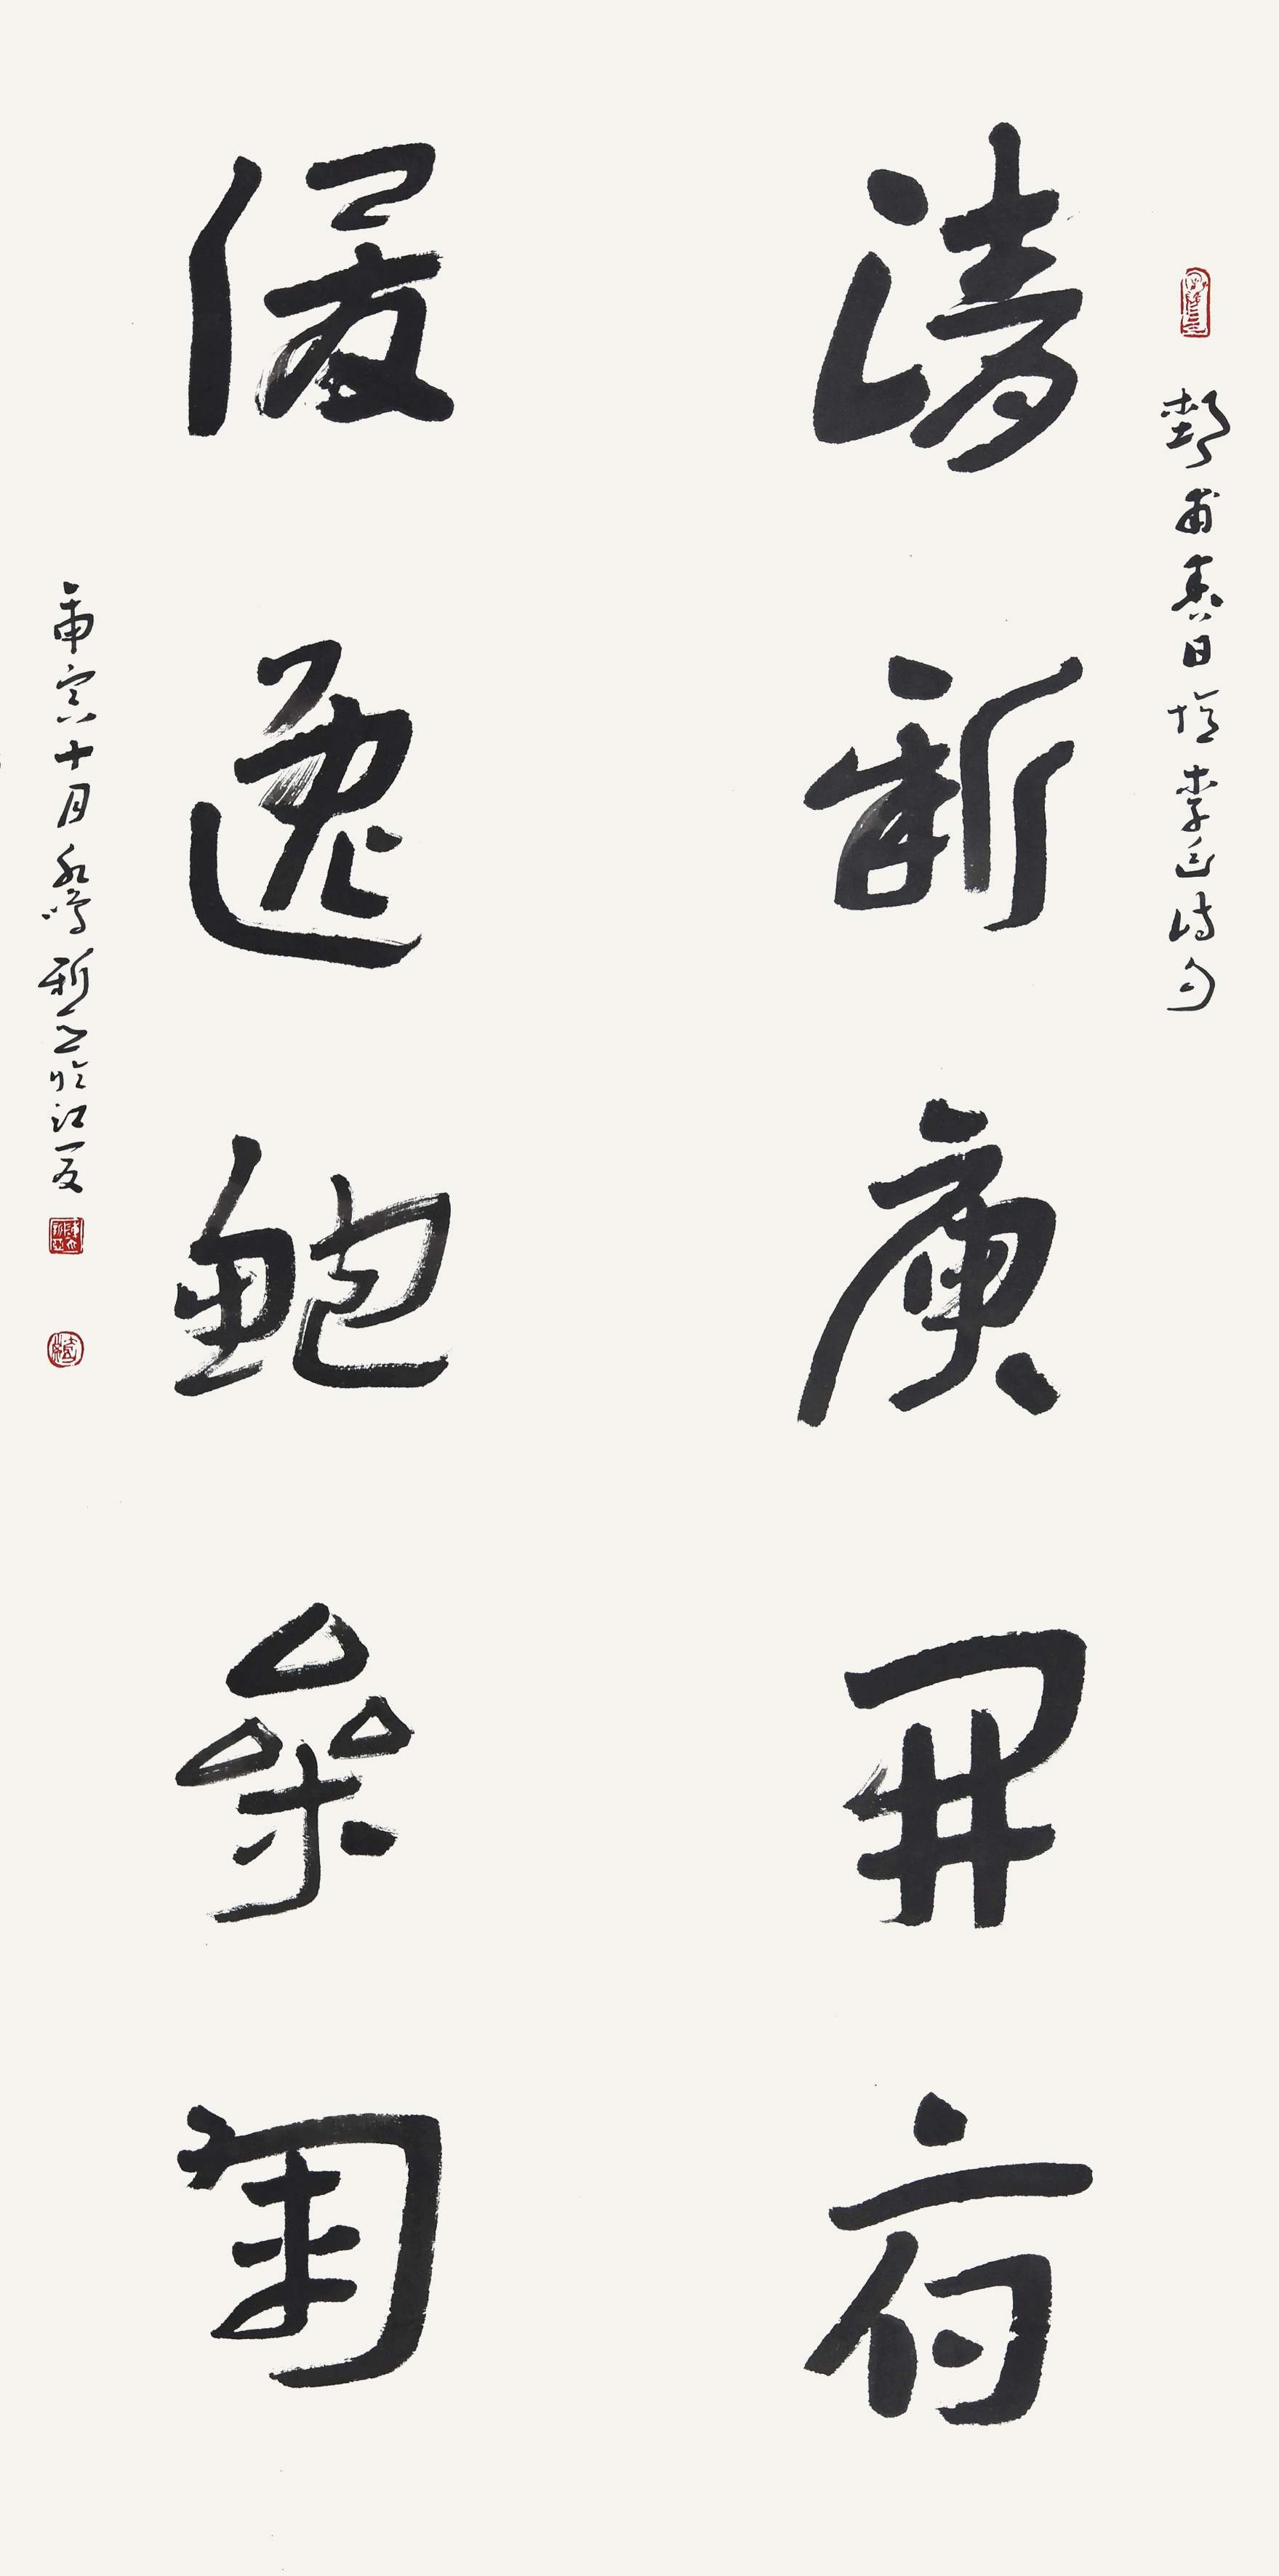 杜甫春日憶李白詩句
清新庾開府
俊逸鮑參軍
庚寅十月新亞於江夏